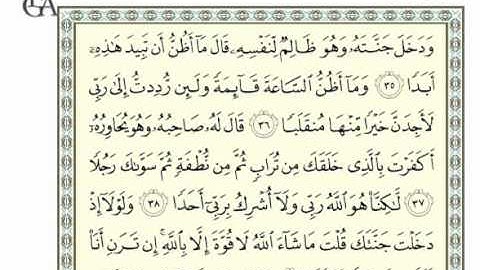 وَدَخَلَ جَنَّتَهُۥ وَهُوَ ظَالِمٌ لِّنَفْسِهِۦ قَالَ مَآ أَظُنُّ أَن تَبِيدَ هَٰذِهِۦٓ
أَبَدًا ٣٥ وَمَآ أَظُنُّ ٱلسَّاعَةَ قَآئِمَةً وَلَئِن رُّدِدتُّ إِلَىٰ رَبِّى
لَأَجِدَنَّ خَيْرًا مِّنْهَا مُنقَلَبًا ٣٦ قَالَ لَهُۥ صَاحِبُهُۥ وَهُوَ يُحَاوِرُهُۥٓ
أَكَفَرْتَ بِٱلَّذِى خَلَقَكَ مِن تُرَابٍ ثُمَّ مِن نُّطْفَةٍ ثُمَّ سَوَّىٰكَ رَجُلًا
٣٧ لَّٰكِنَّا۠ هُوَ ٱللَّهُ رَبِّى وَلَآ أُشْرِكُ بِرَبِّىٓ أَحَدًا ٣٨ وَلَوْلَآ إِذْ
دَخَلْتَ جَنَّتَكَ قُلْتَ مَا شَآءَ ٱللَّهُ لَا قُوَّةَ إِلَّا بِٱللَّهِ ۚ إِن تَرَنِ أَنَا۠